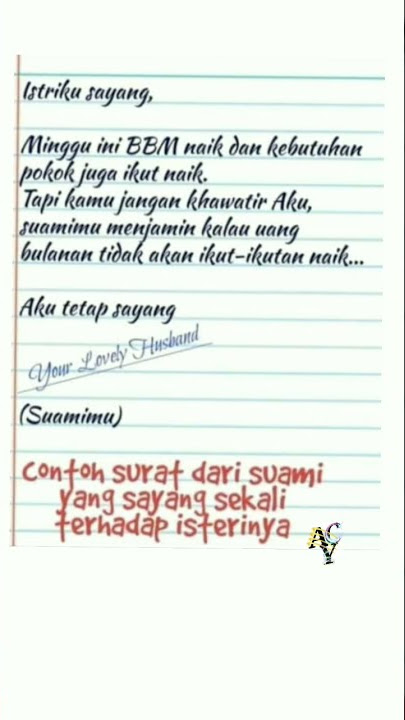 Istriku sayang,
Minggu ini BBM naik dan kebutuhan
pokok juga ikut naik.
Tapi kamu jangan khawatir Aku,
suamimu menjamin kalau uang
bulanan tidak akan ikut-ikutan naik...
Aku tetap sayang
Your Lovely Husband
(Suamimu)
Contoh surat dari suami
yang sayang sekali
terhadap isterinya
ACY